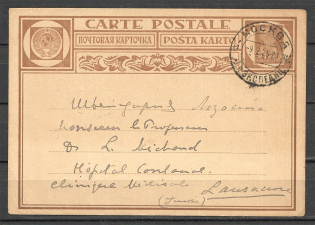 CARTE POSTALE
ПОЧТОВАЯ КАРТОЧКА POSTA KARTO
МОСКВА
Швейцария Лозанна
Monsieur le Professeur
Dr L. Michaud
Hôpital Cantonal
Clinique Médicale Lausanne
(Suisse)